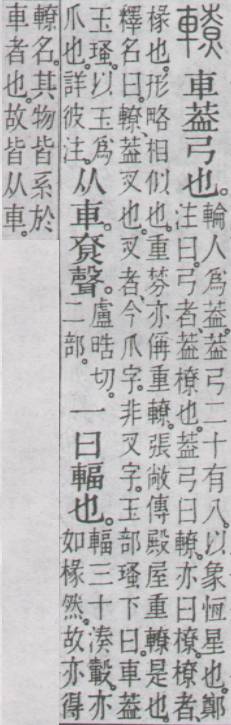 轑 車葢弓也。輪人爲葢。葢弓二十有八。以象恆星也。鄭
注曰。弓者、葢橑也。葢弓曰轑。亦曰橑。橑者、
椽也。形略相似也。重棼亦偁重轑。張敞傳殿屋重轑是也。
釋名曰。轑、葢㕚也。㕚者、今爪字。非叉字。玉部瑵下曰。車葢
玉瑵。以玉爲
爪也。詳彼注。
从車。尞聲。
盧晧切。
二部。
一曰輻也。
輻三十湊轂。亦
如椽然。故亦得
轑名。其物皆系於
車者也。故皆从車。